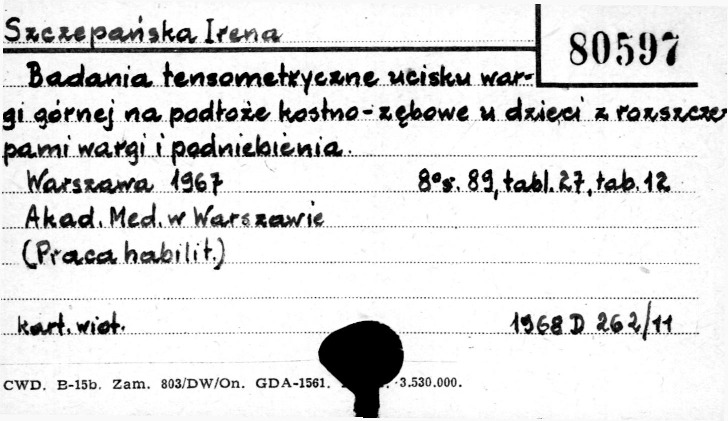 Szczepańska Irena
80597
Badania tensometryczne ucisku war-
gi górnej na podłoże kostno-zębowe u dzieci z rozszcze
pami wargi i podniebienia.
Warszawa 1967 8° s. 89, tabl. 27, tab. 12
Akad. Med. w Warszawie
(Praca habilit.)
kart. wiot. 1968 D 262/11
CWD. B-15b. Zam. 803/DW/On. GDA-1561. 3.530.000.